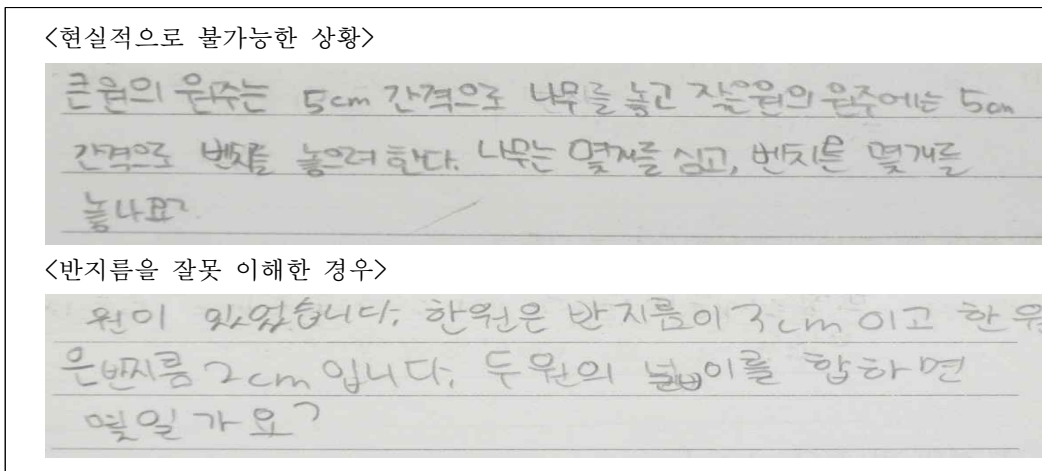 <현실적으로 불가능한 상황>
큰 원의 원주는 5cm 간격으로 나무를 놓고 작은원의 원주에는 5cm
간격으로 벤치를 놓으려 한다. 나무는 몇개를 심고, 벤치는 몇개를
놓나요?
<반지름을 잘못 이해한 경우>
원이 있었습니다. 한원은 반지름이 3cm 이고 한 원
은 반지름 2cm 입니다. 두 원의 넓이를 합하면
몇일가요?